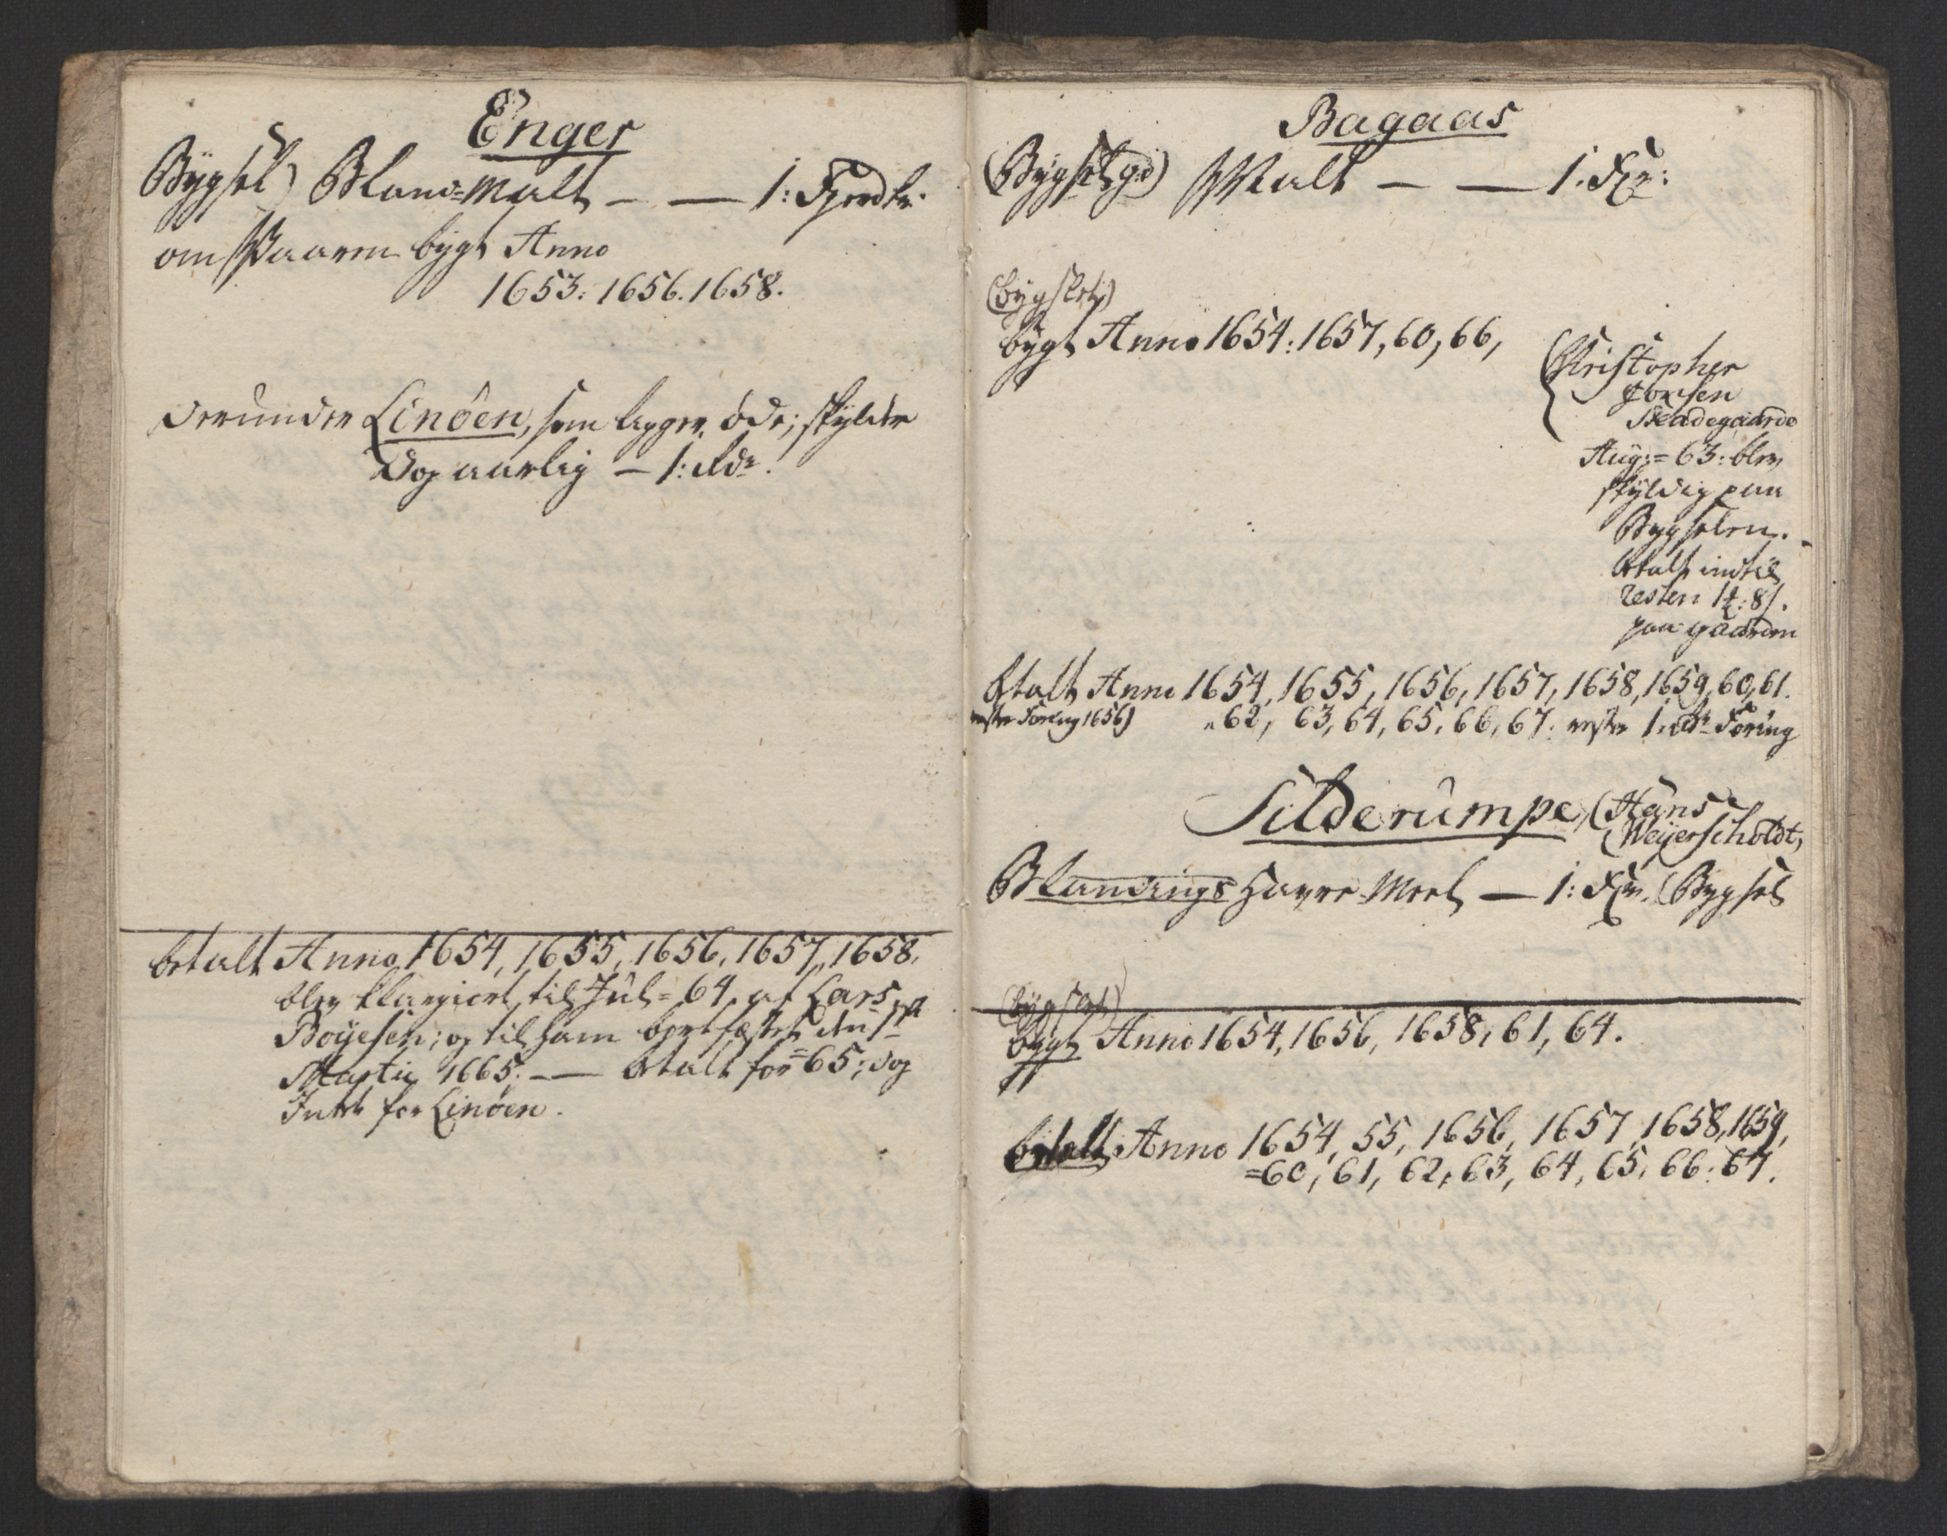 Enger
Bÿgsel) Bland-Malt — — 1: Fjerdk.
om Vaaren bÿgt Anno
1653: 1656. 1658.
derunder Linöen, som ligger öde; skÿlder
Dog aarlig — 1: Rdr.
betalt Anno 1654, 1655, 1656, 1657, 1658.
blev klargiort til Jul = 64, af Lars
Boÿesen; og til ham bortfæstet den 1st
Martij 1665. — betalt for = 65; dog
Intet for Linöen.
Bagaas
(Bÿgsel gd) Malt — — 1. Fjr:
(bÿgslet)
bÿgt Anno 1654: 1657, 60, 66,
(Christopher
Jonsen
Skadegaard
Aug: = 63: blev
skÿldig paa
Bygselen.
betalt indtil
resten 1 8/.
paa gaarden
btalt Anno 1654, 1655, 1656, 1657, 1658, 1659, 60, 61.
rester Foring 1656) 62, 63, 64, 65, 66, 67. rester 1. Foring
Silderumpe, (Hans
Weÿerscholdt,
Blandings Havre-Meel — 1: Fjr. (Bygsel
(bÿgslet)
bÿgt Anno 1654, 1656, 1658, 61, 64.
betalt Anno 1654, 55, 1656, 1657, 1658, 1659,
=60, 61, 62, 63, 64, 65, 66. 67.